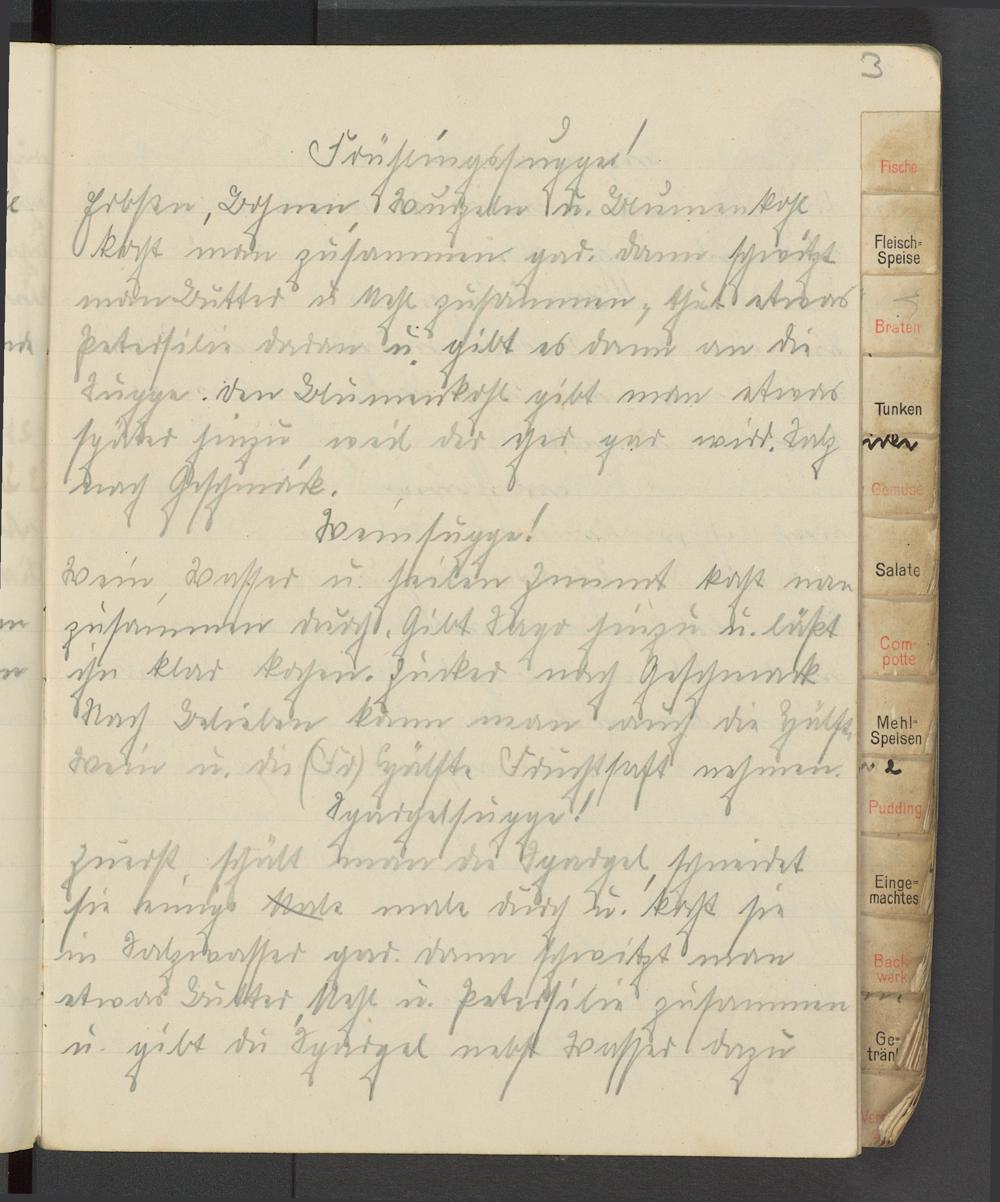 3
Frühlingssuppe!
Erbsen, Bohnen, Wurzeln u. Blumenkohl
kocht man zusammen gar. dann schwitzt
man Butter u Mehl zusammen, thut etwas
Petersilie daran u. gibt es dann an die
Suppe. den Blumenkohl gibt man etwas
später hinzu, weil der eher gar wird. Salz
nach Geschmack.
Weinsuppe!
Wein, Wasser u. heilen Zimmt kocht man
zusammen durch. Gibt Sago hinzu u. läßt
ihn klar kochen. Zucker nach Geschmack
Nach Belieben kann man auch die Hälfte
Wein u. die (Fr) Hälfte Fruchtsaft nehmen.
Spargelsuppe!
Zuerst, schält man die Spargel, schneidet
sie einige Male male durch u. kocht sie
in Salzwasser gar. dann schwitzt man
etwas Butter, Mehl u. Petersilie zusammen
u. gibt die Spargel nebst Wasser dazu
Fische
Fleisch-
Speise
Braten
Tunken
Gemüse
Salate
Com-
potte
Mehl-
Speisen
Pudding
Einge-
machtes
Back-
werk
Ge-
trän